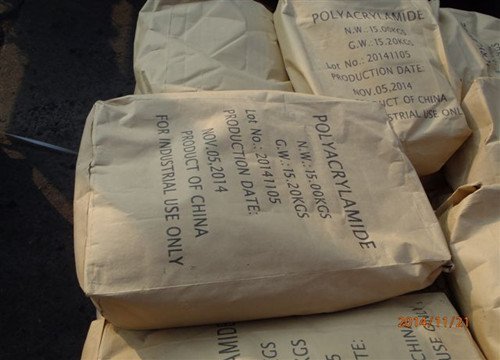 POLYACRYLAMIDE
N.W.:15.00KGS
G.W.:15.20KGS
Lot No.: 20141105
PRODUCTION DATE:
NOV.05,2014
PRODUCT OF CHINA
FOR INDUSTRIAL USE ONLY
POLYACRYLAMIDE
N.W.:15.00KGS
G.W.:15.20KGS
Lot No.: 20141105
PRODUCTION DATE:
NOV.05,2014
OF CHINA
USE ONLY
2014/11/21